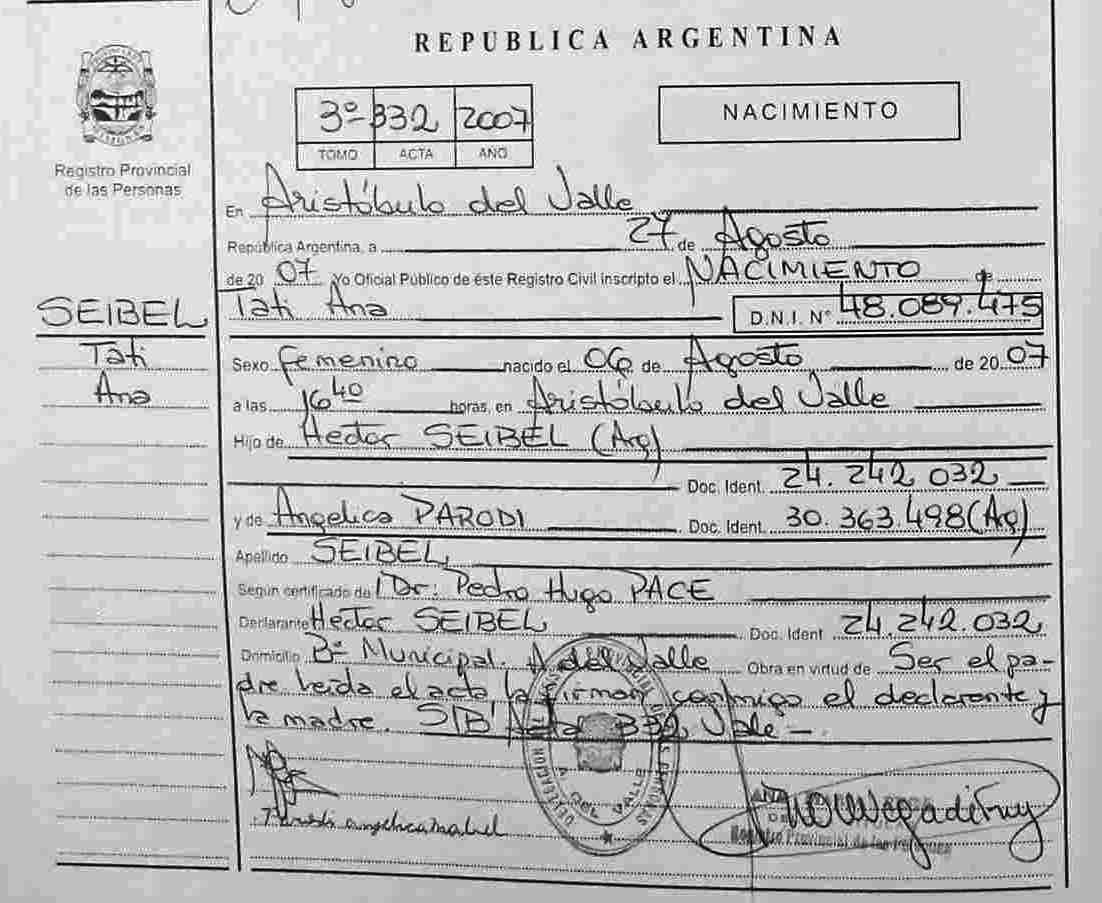 REPUBLICA ARGENTINA
3º 332 2007
TOMO ACTA AÑO
NACIMIENTO
Registro Provincial
de las Personas
SEIBEL
Tati
Ana
En Aristóbulo del Valle
República Argentina, a 27 de Agosto
de 20 07 Yo Oficial Público de éste Registro Civil inscripto el NACIMIENTO de
Tati Ana D.N.I. Nº 48.089.475
Sexo femenino nacido el 06 de Agosto de 20 07
a las 16 40 horas, en Aristóbulo del Valle
Hijo de Hector SEIBEL (Arg)
Doc. Ident. 24.242.032
y de Angelica PARODI Doc. Ident. 30.363.498 (Arg)
Apellido SEIBEL
Según certificado de Dr. Pedro Hugo PACE
Declarante Hector SEIBEL Doc. Ident 24.242.032
Domicilio Bº Municipal. A. del Valle Obra en virtud de Ser el pa-
dre leida el acta la firman conmigo el declarante y
la madre. S/B Acta 332 Vale -
A. DEL VALLE
angelica mabel
Registro Provincial de las Personas